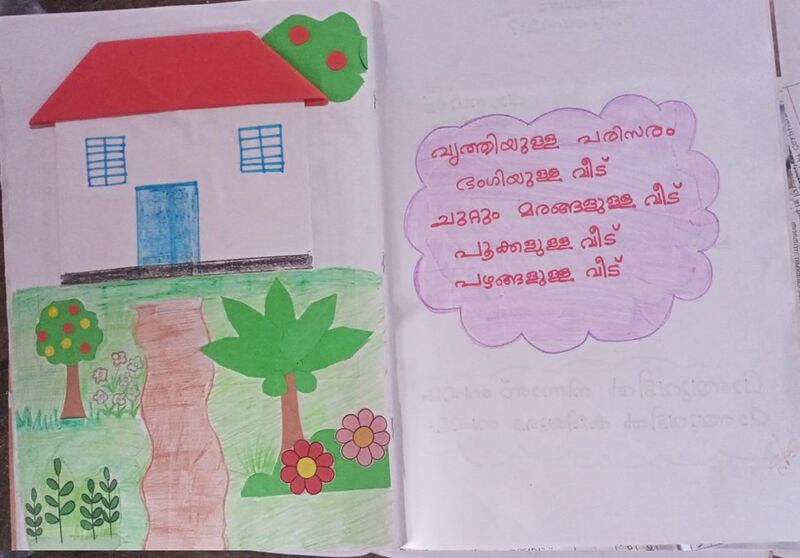 വൃത്തിയുള്ള പരിസരം
ഭംഗിയുള്ള വീട്
ചുറ്റും മരങ്ങളുള്ള വീട്
പൂക്കളുള്ള വീട്
പഴങ്ങളുള്ള വീട്